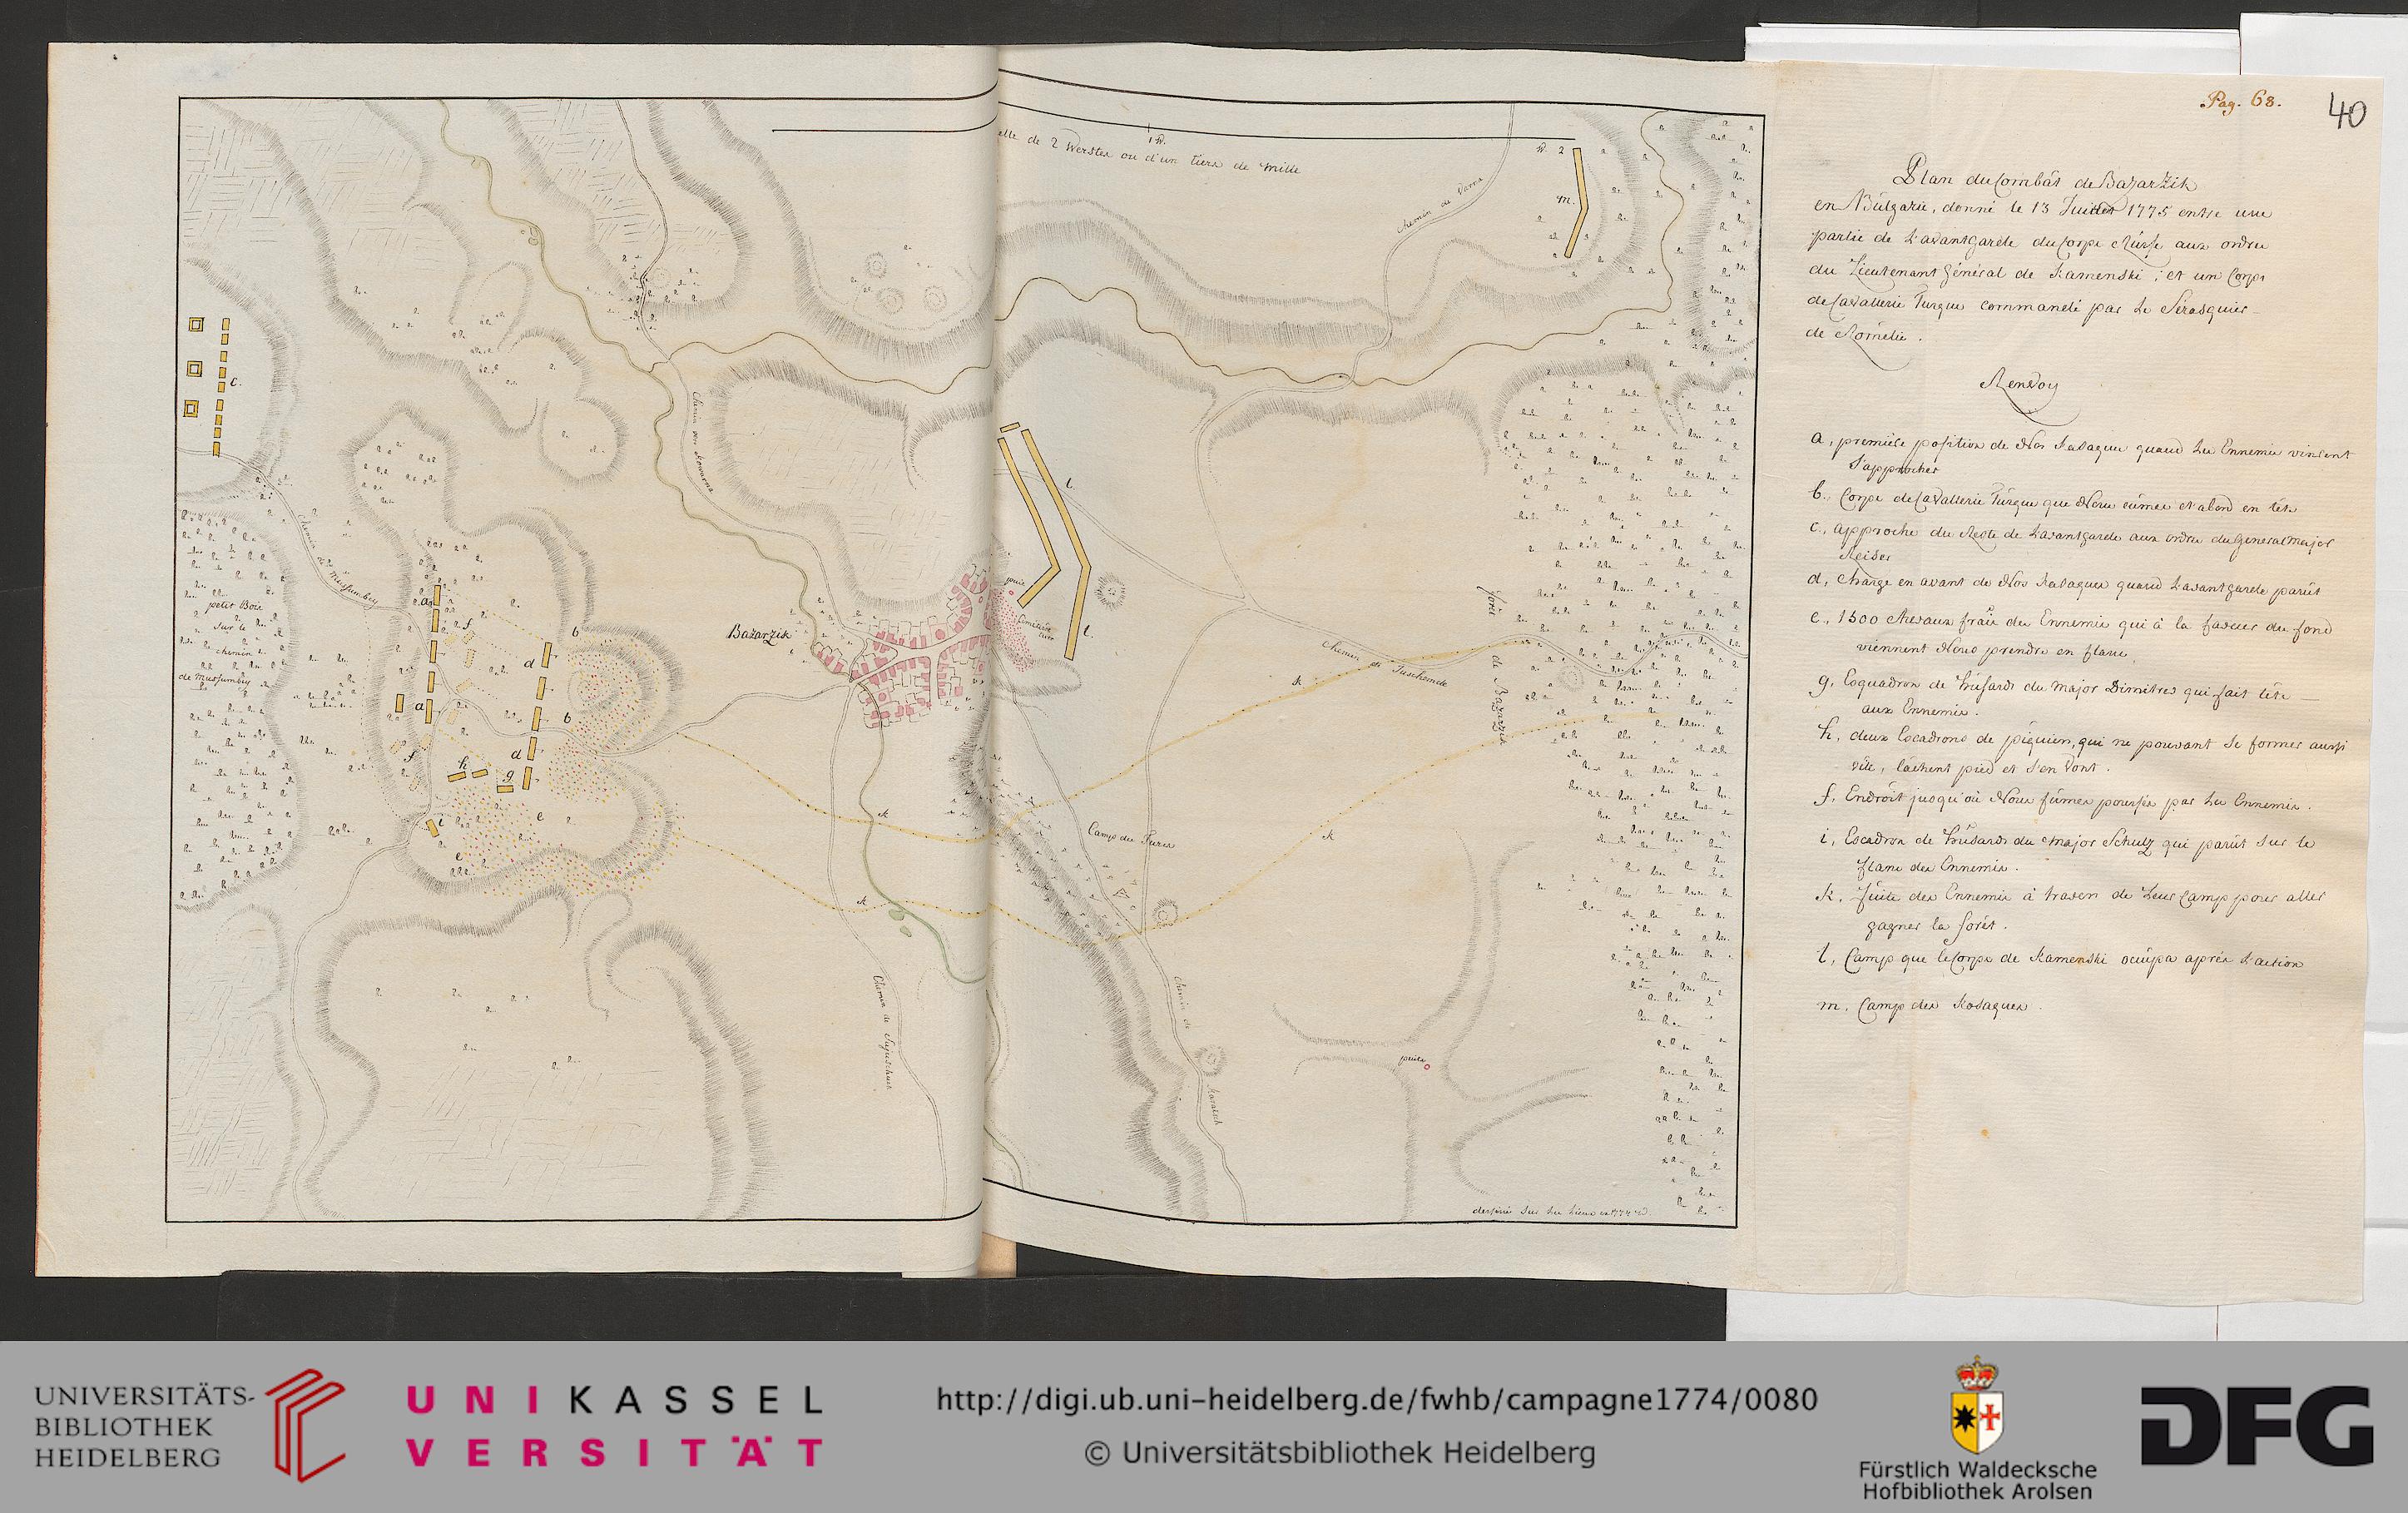 Pag. 68.
40
Plan du Combât de Bazarzik
en Bùlgarie, donné le 13 Juillet 1775 entre une
partie de L'avantgarde du Corps Rùsse aux ordres
du Lieutenant Général de Kamenski; et un Corps
de Cavallerie Turque commandé par Le Sérasquier
de Romélie.
Renvoy
a, première position de Nos Kosaques quand Les Ennemis vinrent
s'approcher
b, Corps de Cavallerie Turque que Nous eûmes d'abord en tête
c, approche du Reste de L'avantgarde aux ordres du General Major
Reiser
d, charge en avant de Nos Kosaques quand L'avantgarde parût
e, 1500 chevaux frais des Ennemis qui à la faveur du fond
viennent Nous prendre en flanc,
g, Esquadron de Hùsards du Major Dimitres qui fait tête
aux Ennemis.
h, deux Escadrons de piquiers, qui ne pouvant se former aussi
vite, lâchent pied et s'en vont.
f, Endroit jusqu'où Nous fûmes poussés par Les Ennemis.
i, Escadron de Hùsards du Major Schulz qui parût sur le
flanc des Ennemis.
k, fuite des Ennemis à travers de Leur Camp pour aller
gagner la forêt.
l, Camp que le Corps de Kamenski ocùpa après L'action
m, Camp des Kosaques.
elle de 2 Werstes ou d'un tiers de Mille
1 W.
W. 2
m.
chemin de Varna
c.
chemin vers Kowarna
chemin de Mussumbey
petit Bois
sur le
chemin
de Mussumbey
Bazarzik
puis
Cimetière
turc
l
l.
a
a
b
b
d
d
e
e
f
f
g
h
i
k
k
k
k
chemin de Juschamle
forêt de Bazarzik
Camp des Turcs
Chemin de
chemin de Karaisch
puits
dessiné sur les Lieux en 1774
UNIVERSITÄTS-
BIBLIOTHEK
HEIDELBERG
UNIKASSEL
VERSITÄT
http://digi.ub.uni-heidelberg.de/fwhb/campagne1774/0080
© Universitätsbibliothek Heidelberg
Fürstlich Waldecksche
Hofbibliothek Arolsen
DFG